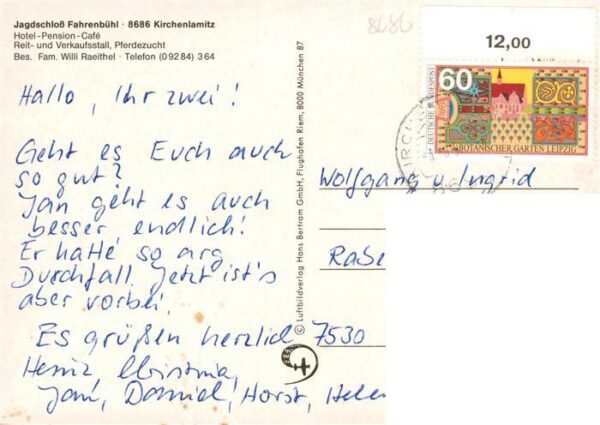 Jagdschloß Fahrenbühl · 8686 Kirchenlamitz
Hotel-Pension-Café
Reit- und Verkaufsstall, Pferdezucht
Bes. Fam. Willi Raeithel · Telefon (0 92 84) 3 64
8686
12,00
60
DEUTSCHE BUNDESPOST
BOTANISCHER GARTEN LEIPZIG
Hallo, Ihr zwei!
Geht es Euch auch
so gut?
Jan geht es auch
besser endlich!
Er hatte so arg
Durchfall. Jetzt ist's
aber vorbei.
Es grüßen herzlich
Heinz Christina,
Jan, Daniel, Horst, Helen
© Luftbildverlag Hans Bertram GmbH, Flughafen Riem, 8000 München 87
Wolfgang u. Ingrid
Rabe
7530